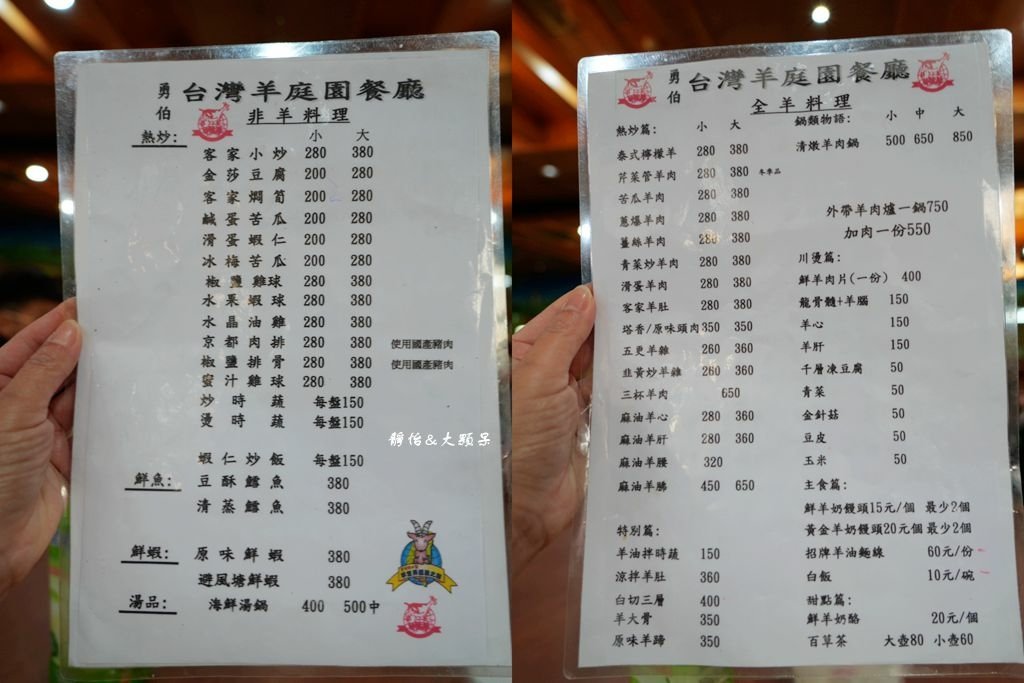 勇伯 台灣羊庭園餐廳
非羊料理
熱炒: 小 大
客家小炒 280 380
金莎豆腐 200 280
客家燜筍 200 280
鹹蛋苦瓜 200 280
滑蛋蝦仁 200 280
冰梅苦瓜 200 280
椒鹽雞球 280 380
水果蝦球 280 380
水晶油雞 280 380
京都肉排 280 380 使用國產豬肉
椒鹽排骨 280 380 使用國產豬肉
蜜汁雞球 280 380
炒時蔬 每盤150
燙時蔬 每盤150
蝦仁炒飯 每盤150
鮮魚: 豆酥鱈魚 380
清蒸鱈魚 380
鮮蝦: 原味鮮蝦 380
避風塘鮮蝦 380
湯品: 海鮮湯鍋 400 500中
靜怡&大顆呆
勇伯 台灣羊庭園餐廳
全羊料理
熱炒篇: 小 大
泰式檸檬羊 280 380
芹菜管羊肉 280 380 冬季品
苦瓜羊肉 280 380
蔥爆羊肉 280 380
薑絲羊肉 280 380
青菜炒羊肉 280 380
滑蛋羊肉 280 380
客家羊肚 280 380
塔香/原味頭肉350 350
五更羊雜 260 360
韭黃炒羊雜 260 360
三杯羊肉 650
麻油羊心 280 360
麻油羊肝 280 360
麻油羊腰 320
麻油羊腩 450 650
特別篇:
羊油拌時蔬 150
涼拌羊肚 360
白切三層 400
羊大骨 350
原味羊蹄 350
鍋類物語: 小 中 大
清燉羊肉鍋 500 650 850
外帶羊肉爐一鍋750
加肉一份550
川燙篇:
鮮羊肉片(一份) 400
龍骨髓+羊腦 150
羊心 150
羊肝 150
千層凍豆腐 50
青菜 50
金針菇 50
豆皮 50
玉米 50
主食篇:
鮮羊奶饅頭15元/個 最少2個
黃金羊奶饅頭20元個 最少2個
招牌羊油麵線 60元/份
白飯 10元/碗
甜點篇:
鮮羊奶酪 20元/個
百草茶 大壺80 小壺60